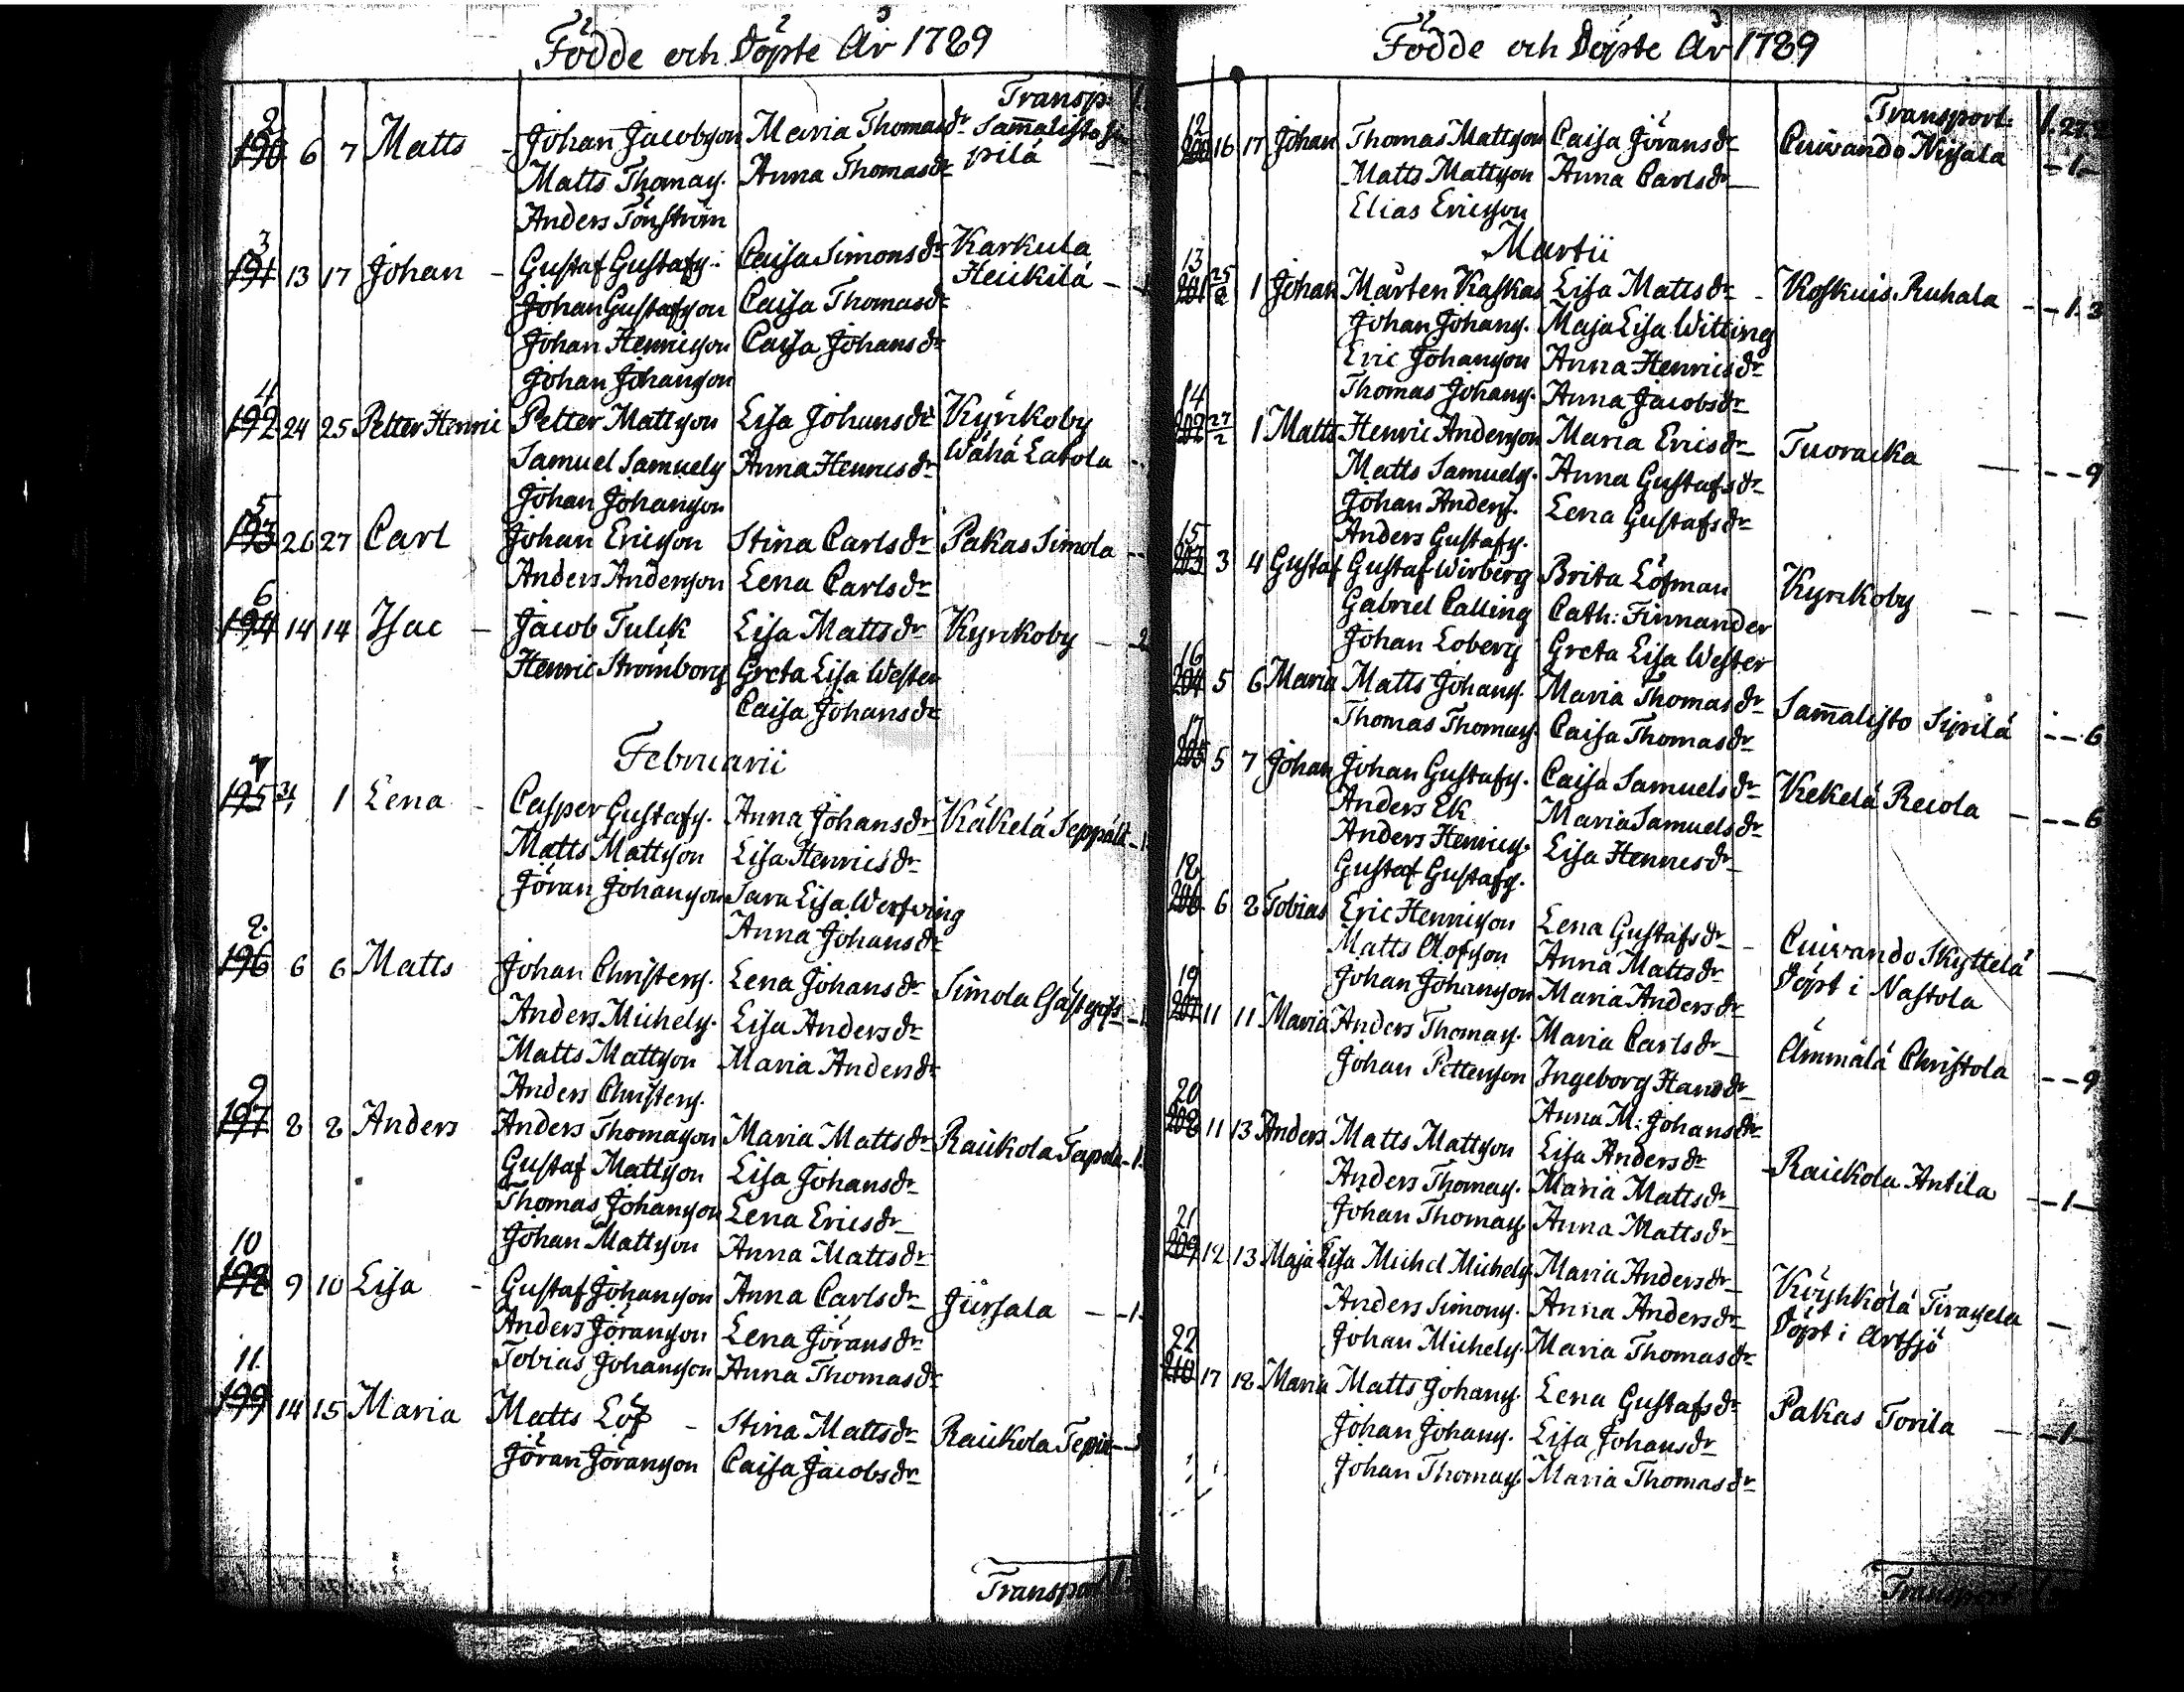 Födde och Döpte År 1789
Transp.
2
190 6 7 Matts - Johan Jacobsson Maria Thomasdr Sam̄alisto Si
Matts Thomass. Anna Thomasdr pilä
Anders Tönström
3
191 13 17 Johan - Gustaf Gustafs. Caisa Simonsdr Karkula
Johan Gustafsson Caisa Thomasdr Heikilä
Johan Henricsson Caisa Johansdr
Johan Johansson
4
192 24 25 Petter Henric Petter Mattsson Lisa Johansdr Kyrkoby
Samuel Samuels Anna Henricsdr Wähä Latola
Johan Johansson
5
193 26 27 Carl Johan Ericsson Stina Carlsdr Pakas Simola
Anders Andersson Lena Carlsdr
6
194 14 14 Isac - Jacob Tulck Lisa Mattsdr Kyrkoby
Henric Strömborg Greta Lisa Wester
Caisa Johansdr
Februarii
7
195 31/1 1 Lena - Casper Gustafs. Anna Johansdr Käkelä Seppält
Matts Mattsson Lisa Henricsdr
Jöran Johansson Sara Lisa Werfving
Anna Johansdr
8.
196 6 6 Matts Johan Christers. Lena Johansdr Simola Gästgifs
Anders Michels. Lisa Andersdr
Matts Mattsson Maria Andersdr
Anders Christers.
9
197 8 8 Anders Anders Thomasson Maria Mattsdr Raikola Tapola - 1.
Gustaf Mattsson Lisa Johansdr
Thomas Johansson Lena Ericsdr
Johan Mattsson Anna Mattsdr
10
198 9 10 Lisa - Gustaf Johansson Anna Carlsdr Jürsala - - 1.
Anders Göransson Lena Göransdr
Tobias Johansson Anna Thomasdr
11.
199 14 15 Maria Matts Löf - Stina Mattsdr Raikola
Jöran Göransson Caisa Jacobsdr
Transport
Födde och Döpte År 1789
Transport.
12
200 16 17 Johan Thomas Mattsson Caisa Göransdr Cuivando Nisala - 1 -
Matts Mattsson Anna Carlsdr
Elias Ericsson
Martii
13
201 25/2 1 Johan Mårten Kaskas Lisa Mattsdr - Koskuis. Ruhala - - 1. 3
Johan Johans. Maja Lisa Witting
Eric Johansson Anna Henricsdr
Thomas Johans. Anna Jacobsdr
14
202 27/2 1 Matts Henric Andersson Maria Ericsdr Tuoracka - - - 9
Matts Samuels. Anna Gustafsdr
Johan Anders. Lena Gustafsdr
Anders Gustafs.
15
203 3 4 Gustaf Gustaf Wirberg Brita Löfman Kyrkoby - - -
Gabriel Calling Cath: Finnander
Johan Loberg Greta Lisa Wester
16
204 5 6 Maria Matts Johans. Maria Thomasdr Sam̄alisto Sipilä - - 6
Thomas Thomass. Caisa Thomasdr
17
205 5 7 Johan Johan Gustafs. Caisa Samuelsdr Kekelä Reiola - - - 6
Anders Ek Maria Samuelsdr
Anders Henrics. Lisa Henricsdr
Gustaf Gustafs.
18
206 6 8 Tobias Eric Henricsson Lena Gustafsdr - Cuivando Skyttelä -
Matts Olofsson Anna Mattsdr Döpt i Nastola
Johan Johansson Maria Andersdr
19
207 11 11 Maria Anders Thomass. Maria Carlsdr Ammälä Christola - - 9
Johan Pettersson Ingeborg Hansdr
Anna M: Johansdr
20
208 11 13 Anders Matts Mattsson Lisa Andersdr Raikola Antila - - 1 -
Anders Thomass. Maria Mattsdr
Johan Thomass Anna Mattsdr
21
209 12 13 Maja Lisa Michel Michels. Maria Andersdr
Anders Simons. Anna Andersdr Döpt i Artsjö
Johan Michels. Maria Thomasdr
22
210 17 18 Maria Matts Johans. Lena Gustafsdr Pakas Torila - - 1 -
Johan Johans. Lisa Johansdr
Johan Thomass. Maria Thomasdr
Transport